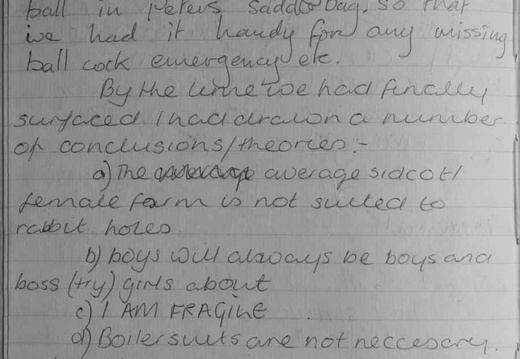 ball in Peters Saddle bag, so that
we had it handy for any missing
ball cock emergency etc.
By the time we had finally
surfaced I had drawn a number
of conclusions/theories:-
a) The average sidcot/
female form is not suited to
rabbit holes
b) boys will always be boys and
boss (try) girls about
c) I AM FRAGILE
d) Boilersuits are not neccesary.